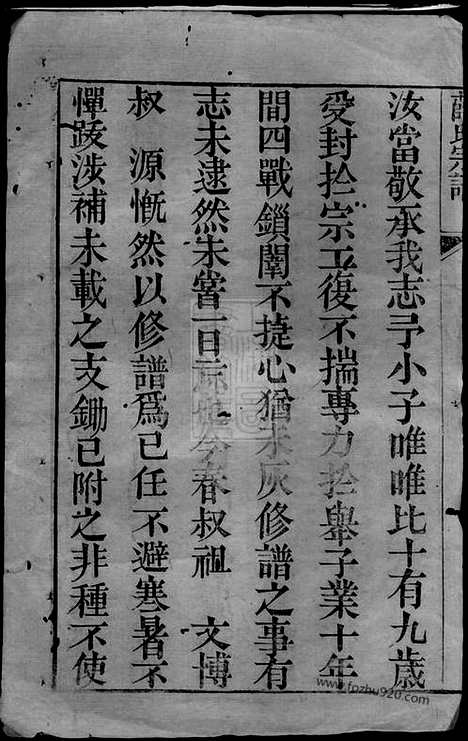 汝當敬承我志予小子唯唯比十有九歲
受封扵宗工復不揣專力扵舉子業十年
間四戰鎖闈不捷心猶未灰修譜之事有
志未逮然未嘗一日忘也今春叔祖 文博
叔 源慨然以修譜爲己任不避寒暑不
憚跋涉補未載之支鋤已附之非種不使
www.fozhu920.com